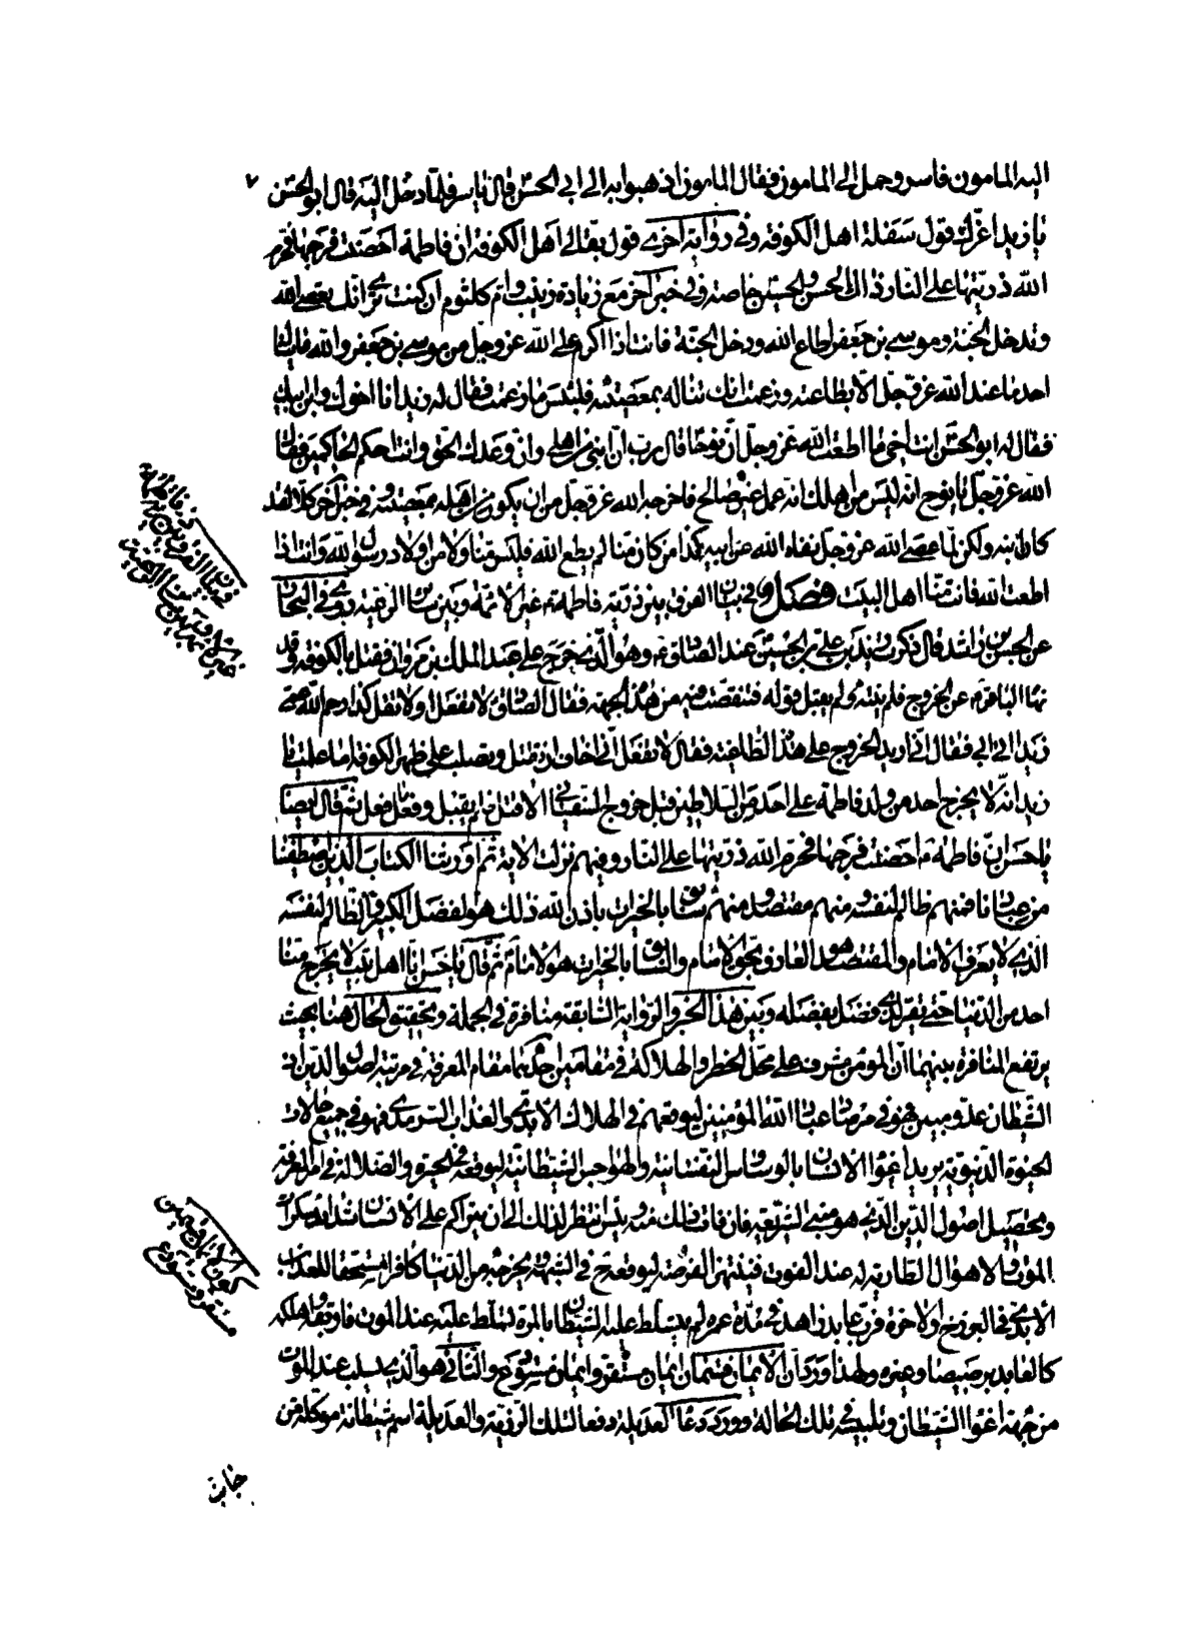 ٧
اليه المامون فاسر وحمل الى المامون فقال المامون اذهبوا به الى ابى الحسن قال ياسر فلما دخل اليه قال ابو الحسن
يا زيد اغرّك قول سفلة اهل الكوفة وفى رواية اخرى قول بقالى اهل الكوفة ان فاطمة احصنت فرجها فحرم
الله ذريتها على النار ذاك الحسن والحسين خاصة وفى خبر آخر مع زيادة زينب وام كلثوم ان كنت ترى انك تعصى الله
وتدخل الجنة وموسى بن جعفر اطاع الله ودخل الجنة فانت اذا اكرم على الله عز وجل من موسى بن جعفر والله ما ينال
احد ما عند الله عز وجل الا بطاعته وزعمت انك تناله بمعصيته فلبئس ما زعمت فقال له زيد انا اخوك وابن ابيك
فقال له ابو الحسن انت اخى ما اطعت الله عز وجل ان نوحا قال رب ان ابنى من اهلى وان وعدك الحق وانت احكم الحاكمين فقال
الله عز وجل يا نوح انه ليس من اهلك انه عمل غير صالح فاخرجه الله عز وجل من ان يكون من اهله بمعصيته وفى خبر آخر كلا لقد
كان ابنه ولكن لما عصى الله عز وجل نفاه الله عن ابيه كذا من كان منا لم يطع الله فليس منا ولا من اولاد رسول الله وانت اذا
اطعت الله فانت منا اهل البيت فصل فى بيان الفرق بين ذرية فاطمة غير الائمة وبين سائر الرعية روى فى البحار
عن الحسن بن راشد قال ذكرت زيد بن على بن الحسين عند الصادق وهو الذى خرج على عبد الملك بن مروان فقتل بالكوفة وقد
نهاه الباقر عن الخروج فلم ينته ولم يقبل قوله فتنقصت فيه من هذه الجهة فقال الصادق لا تفعل ولا تقل كذا رحم الله عمى
زيدا اتى ابى فقال انى اريد الخروج على هذا الطاغية فقال لا تفعل انى اخاف ان تقتل وتصلب على ظهر الكوفة اما علمت يا
زيد انه لا يخرج احد من ولد فاطمة على احد من السلاطين قبل خروج السفيانى الا قتل فلم يقبل وفعل ما فعل ثم قال ايضا
يا حسن ان فاطمة احصنت فرجها فحرم الله ذريتها على النار وفيهم نزلت الاية ثم اورثنا الكتاب الذين اصطفينا
من عبادنا فمنهم ظالم لنفسه ومنهم مقتصد ومنهم سابق بالخيرات باذن الله ذلك هو الفضل الكبير فالظالم لنفسه
الذى لا يعرف الامام والمقتصد هو العارف بحق الامام والسابق بالخيرات هو الامام ثم قال يا حسن انا اهل بيت لا يخرج منا
احد من الدنيا حتى يقر لكل ذى فضل بفضله وبين هذا الخبر والرواية السابقة منافرة فى الجملة وتحقيق الحال هنا بحيث
يرتفع المنافرة بينهما ان المؤمن مشرف على محل الخطر والهلاكة فى مقامين احدهما مقام المعرفة فى مرتبة اصول الدين اذ
الشيطان عدو مبين فهو فى مرصاد عباد الله المؤمنين ليوقعهم فى الهلاك الابدى والعذاب السرمدى فهو فى جميع حالات
الحيوة الدنيوية يريد اغواء الانسان بالوساوس النفسانية والهواجس الشيطانية ليوقعه فى الحيرة والضلالة فى امر المعرفة
وتحصيل اصول الدين الذى هو مبنى الشريعة فان فات ذلك منه ويئس انتظر لذلك الى ان يتراكم على الانسان شدائد سكرات
الموت والاهوال الطارية له عند الفوت فينتهز الفرصة ليوقعه فى الشبهة يخرجه من الدنيا كافرا مستحقا للعذاب
الابدى فى البرزخ والاخرة فرب عابد زاهد فى مدة عمره لم يتسلط عليه الشيطان بالمرة تسلط عليه عند الموت فاوقعه واهلكه
كالعابد برصيصا وغيره ولهذا ورد ان الايمان قسمان ايمان مستقر وايمان مستودع والثانى هو الذى يسلب عند الموت
من جهة اغواء الشيطان وتلبيسه فى تلك الحالة وورد دعاء العديلة دفعا لتلك الرزية والعديلة اسم شيطانة موكلة من
جانب